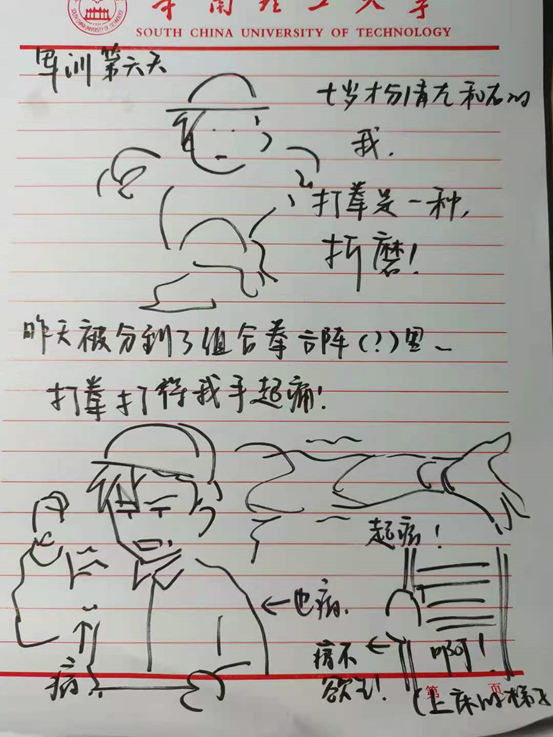 华南理工大学
SOUTH CHINA UNIVERSITY OF TECHNOLOGY
军训第六天
七岁才分清左和右的
我.
打拳是一种,
折磨!
昨天被分到了组合拳方阵(?)里~
打拳打得我手起痛!
起痛!
←也痛.
↑
痛
痛不←
欲生!
啊!
第 页
(上床的梯子